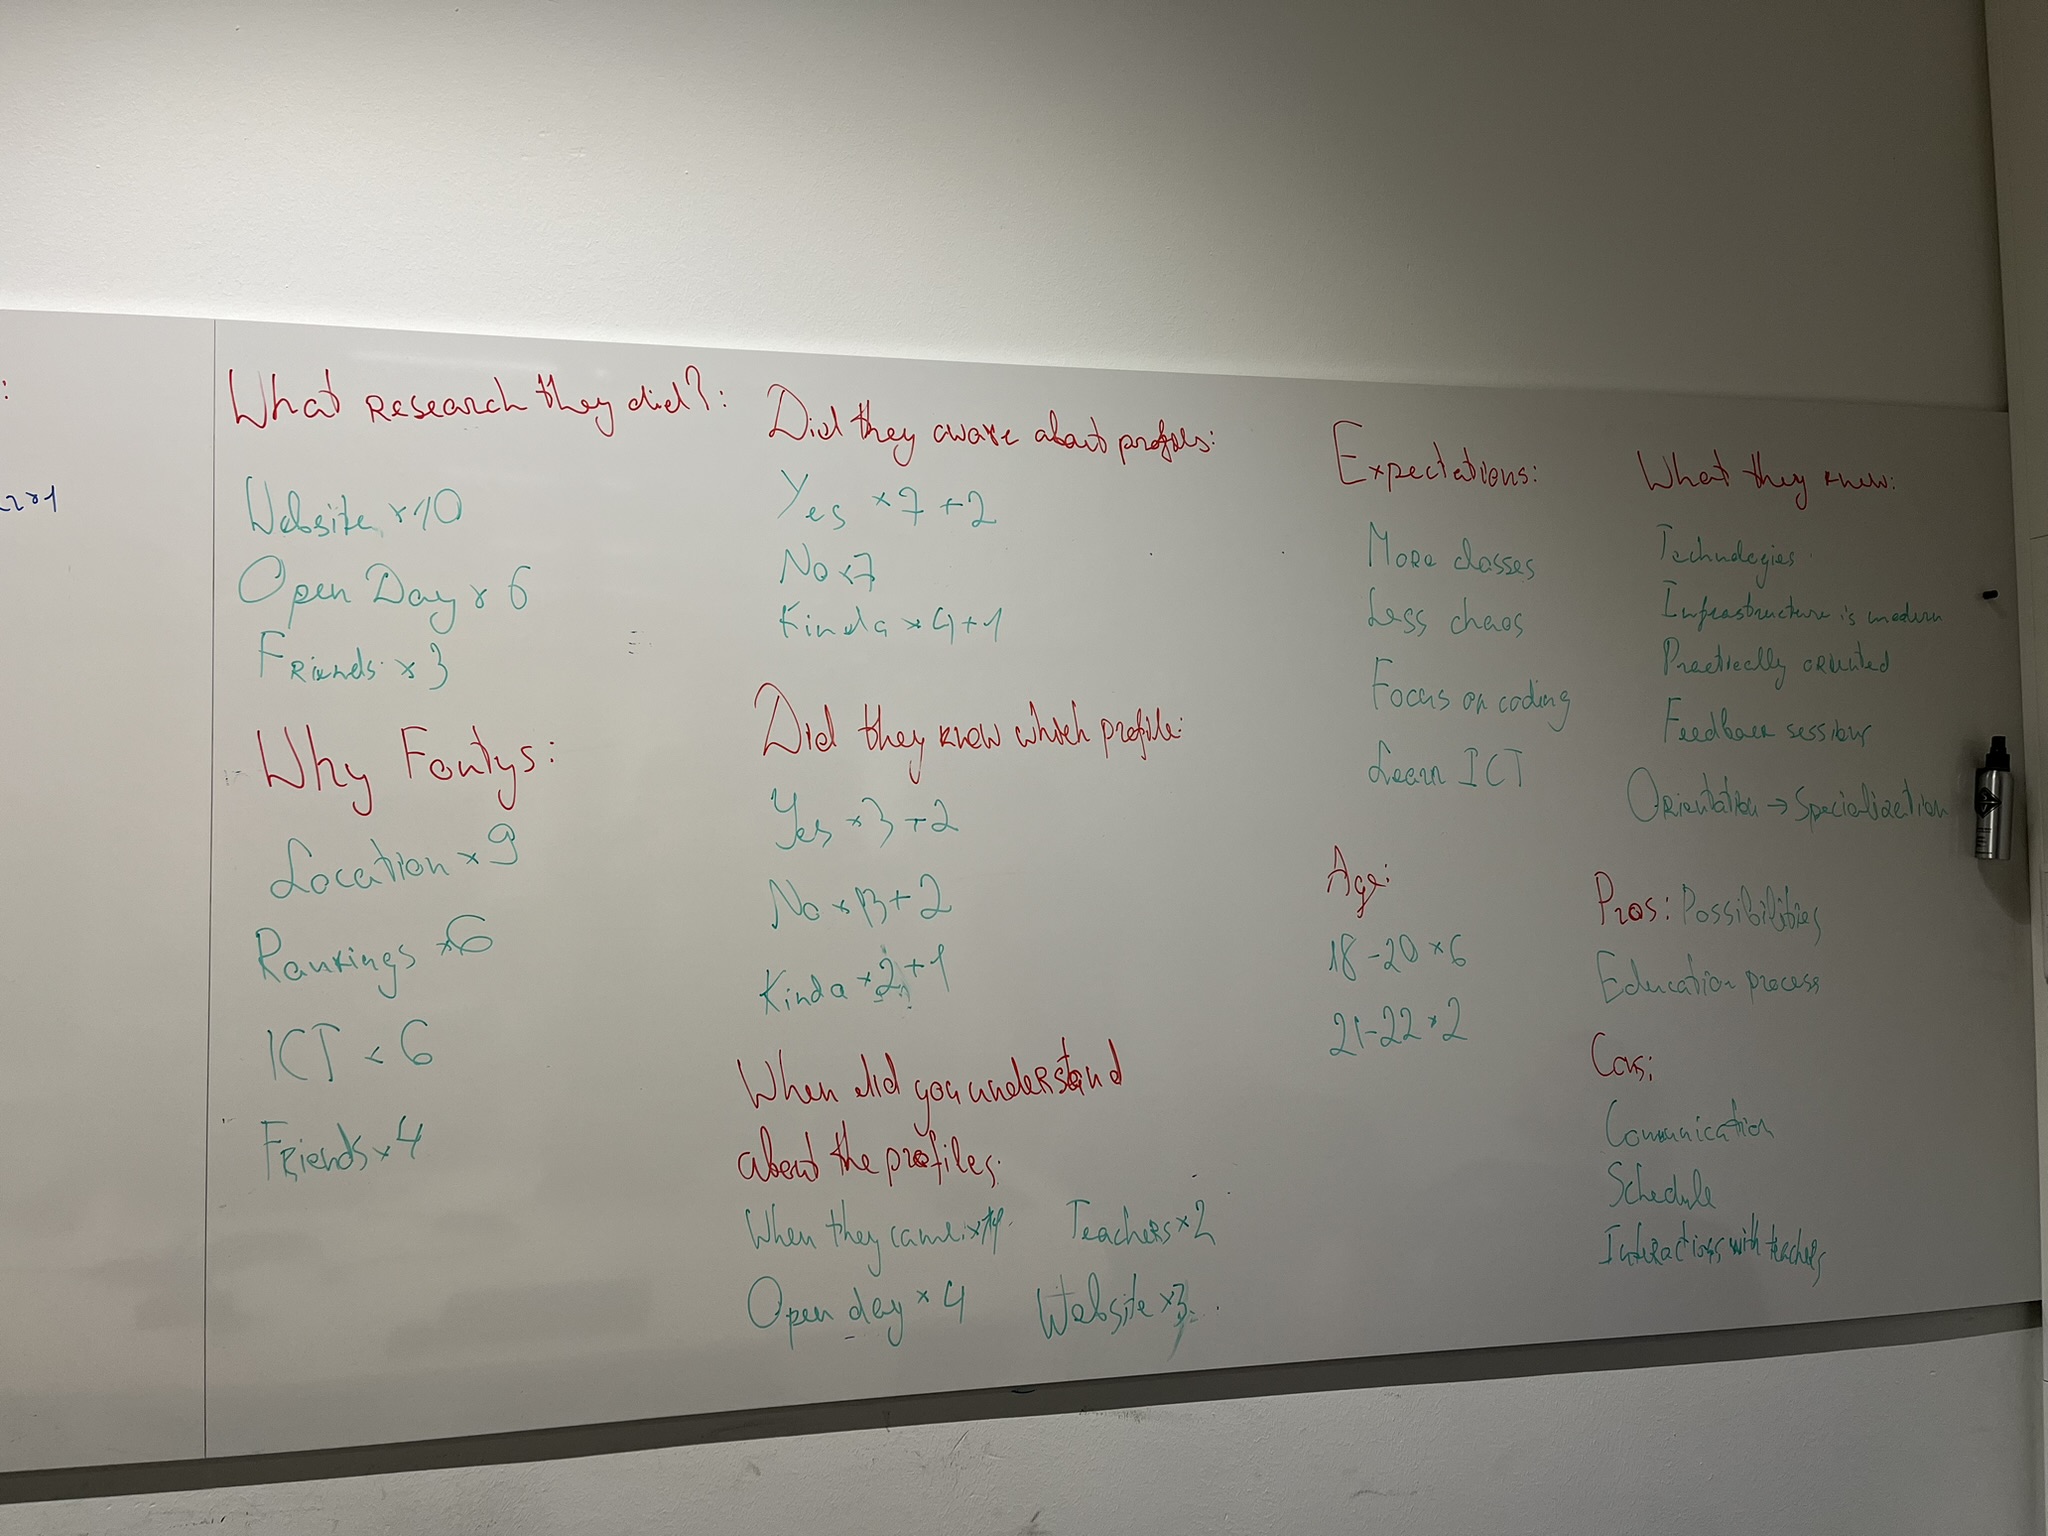 :
What research they did?:
Website ×10
Open Day × 6
Friends × 3
Why Fontys:
Location × 9
Rankings ×6
ICT × 6
Friends × 4
Did they aware about profiles:
Yes ×7 +2
No ×7
Kinda ×4+1
Did they know which profile:
Yes ×3 +2
No ×13+2
Kinda ×2+1
When did you understand
about the profiles:
When they came
Teachers ×2
Open day × 4
Website ×3
Expectations:
More classes
Less chaos
Focus on coding
Learn ICT
Age:
18-20 ×6
21-22 ×2
What they knew:
Technologies
Infrastructure is modern
Practically oriented
Feedback sessions
Orientation → Specialization
Pros: Possibilities
Education process
Cons:
Communication
Schedule
Interactions with teachers